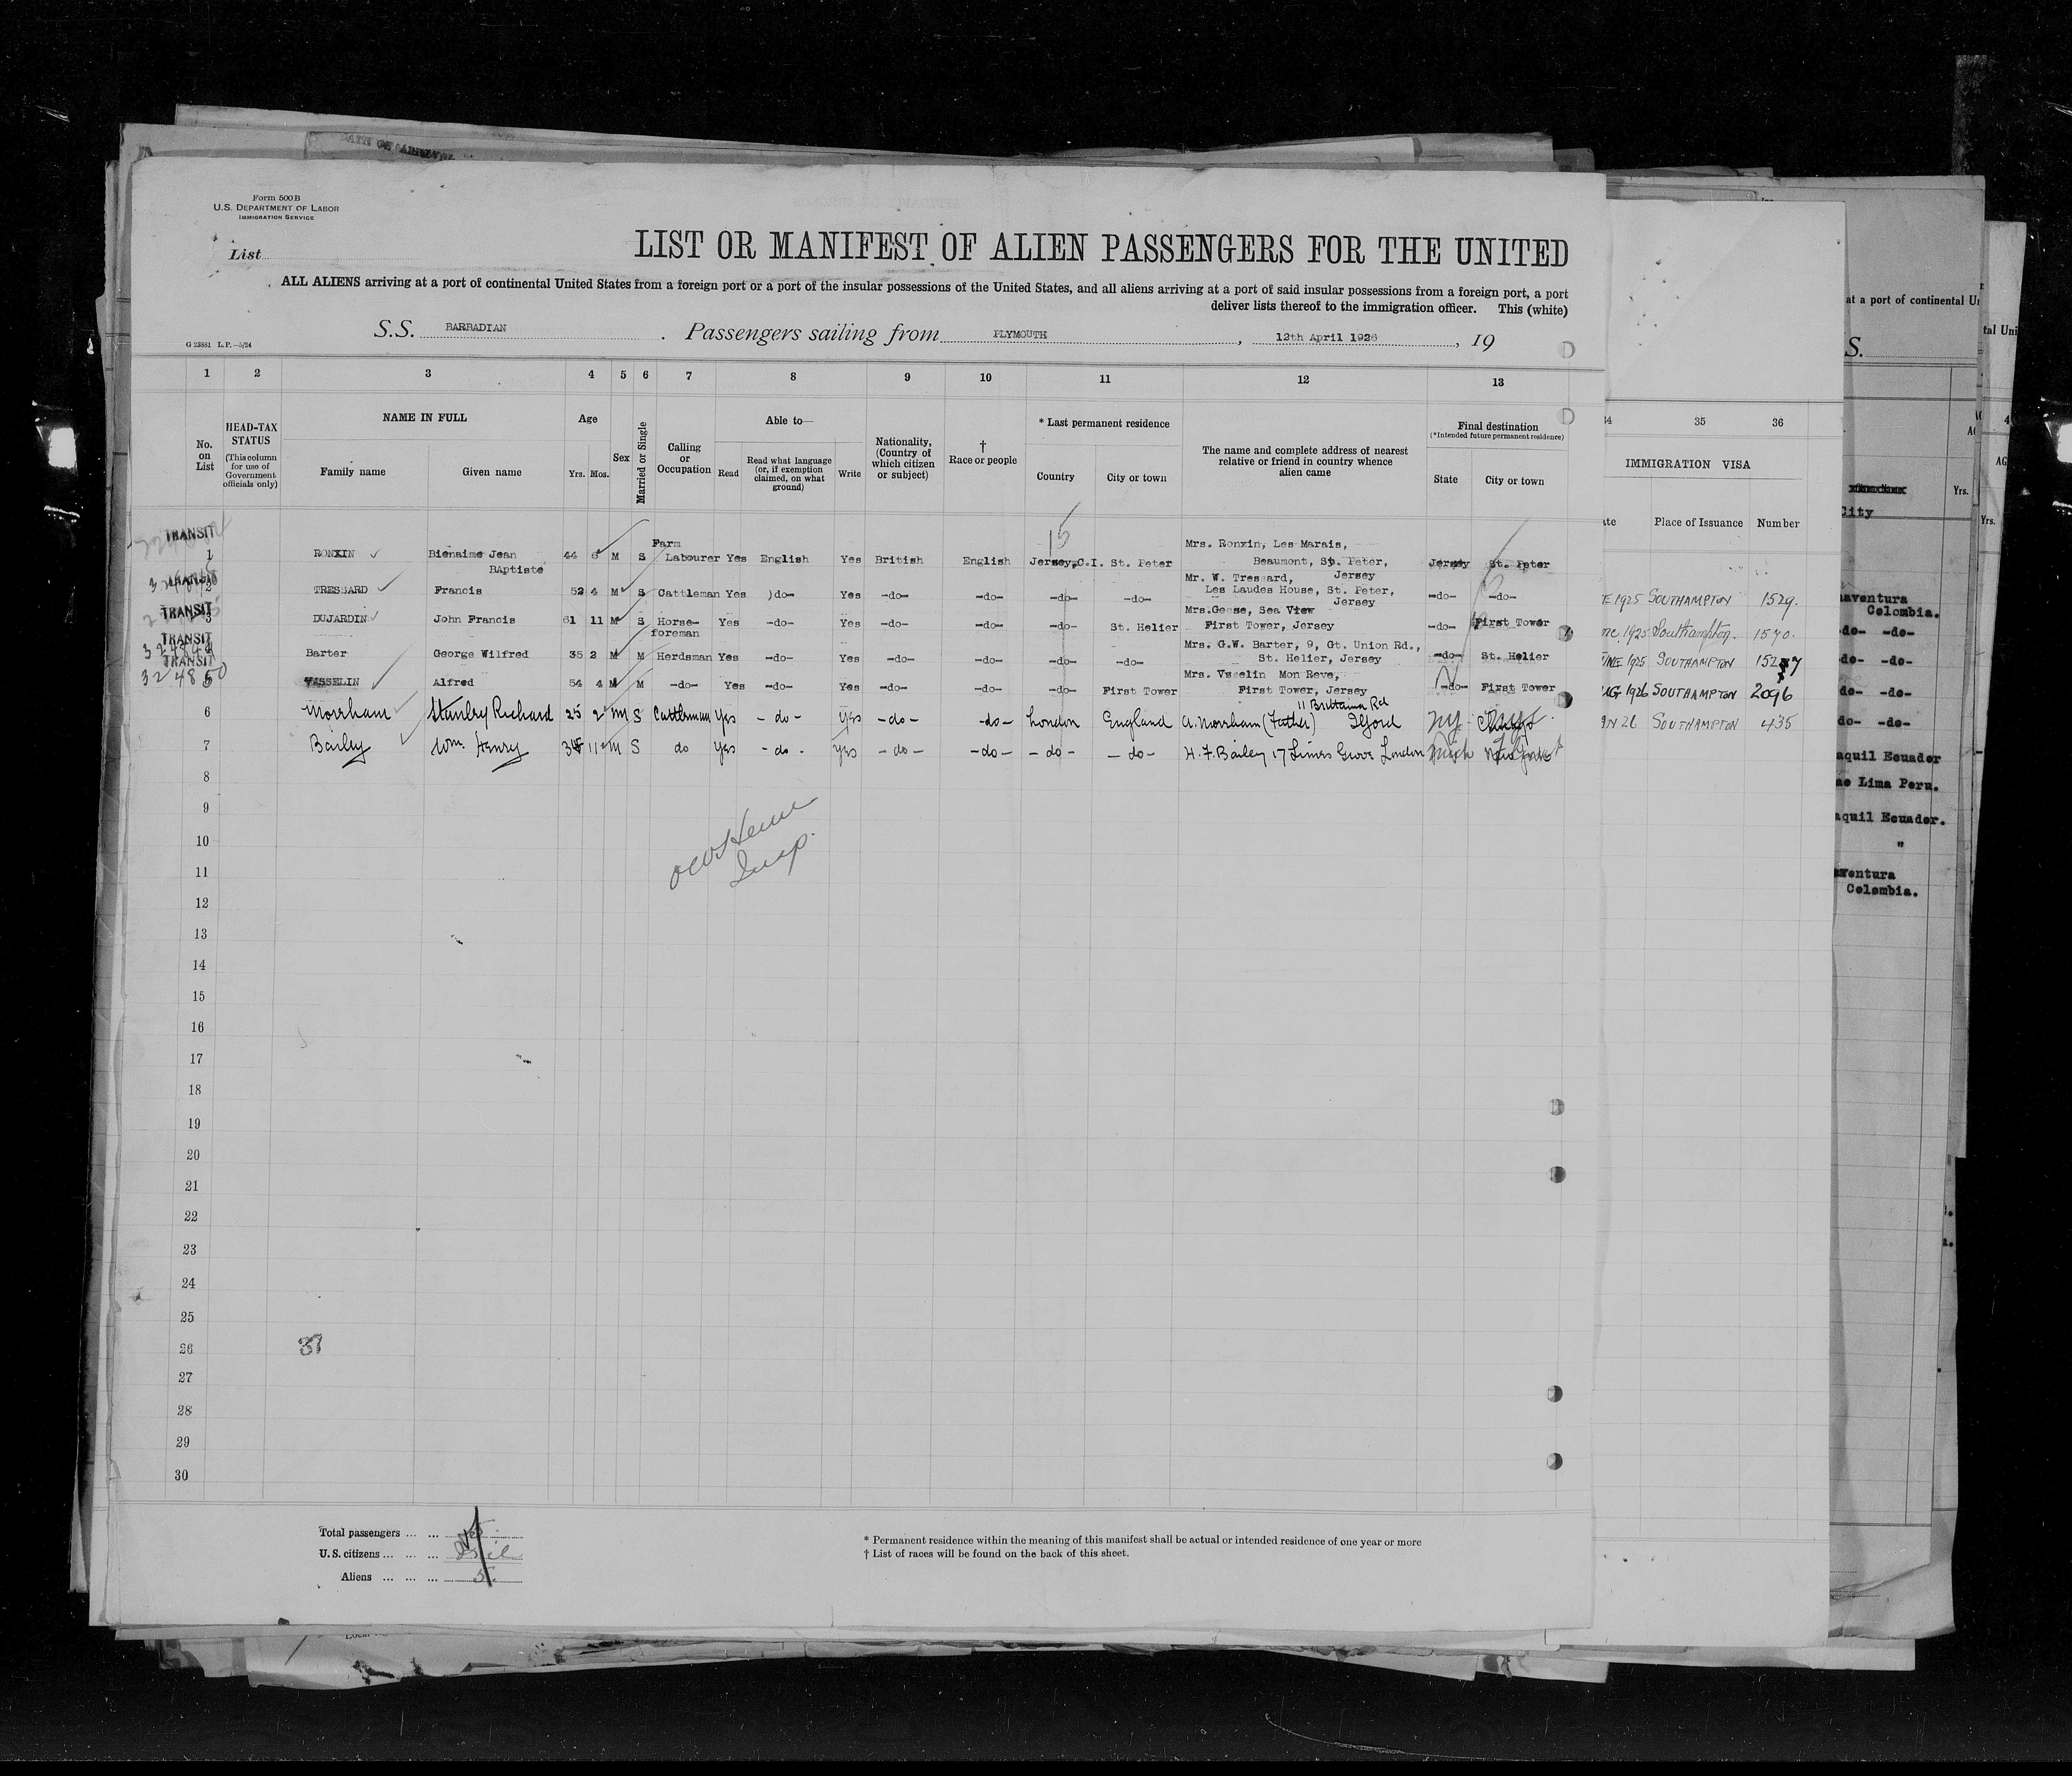 DATE OF ARRIVAL
Form 500B
U.S. DEPARTMENT OF LABOR
IMMIGRATION SERVICE
List
LIST OR MANIFEST OF ALIEN PASSENGERS FOR THE UNITED
ALL ALIENS arriving at a port of continental United States from a foreign port or a port of the insular possessions of the United States, and all aliens arriving at a port of said insular possessions from a foreign port, a port
deliver lists thereof to the immigration officer. This (white)
S.S. BARBADIAN . Passengers sailing from PLYMOUTH , 12th April 1926 , 19
G 23881 L.P.—5/24
1 2 3 4 5 6 7 8 9 10 11 12 13
No. on List
HEAD-TAX STATUS
(This column for use of Government officials only)
NAME IN FULL
Family name Given name
Age
Yrs. Mos.
Sex
Married or Single
Calling or Occupation
Able to—
Read
Read what language (or, if exemption claimed, on what ground)
Write
Nationality, (Country of which citizen or subject)
† Race or people
* Last permanent residence
Country City or town
The name and complete address of nearest relative or friend in country whence alien came
Final destination
(*Intended future permanent residence)
State City or town
TRANSIT
1 RONXIN Bienaime Jean BAptiste 44 6 M S Farm Labourer Yes English Yes British English Jersey,C.I. St. Peter Mrs. Ronxin, Les Marais, Beaumont, St. Peter, Jersey Jersey St. Peter
TRANSIT
2 TRESSARD Francis 52 4 M S Cattleman Yes )do— Yes —do— —do— —do— —do— Mr. W. Tressard, Les Laudes House, St. Peter, Jersey —do— —do—
TRANSIT
3 DUJARDIN John Francis 61 11 M S Horse—foreman Yes —do— Yes —do— —do— —do— St. Helier Mrs.Geese, Sea View First Tower, Jersey —do— First Tower
TRANSIT
Barter George Wilfred 35 2 M M Herdsman Yes —do— Yes —do— —do— —do— —do— Mrs. G.W. Barter, 9, Gt. Union Rd., St. Helier, Jersey —do— St. Helier
TRANSIT
324850
5 VASSELIN Alfred 54 4 M M —do— Yes —do— Yes —do— —do— —do— First Tower Mrs. Vsselin Mon Reve, First Tower, Jersey —do— First Tower
6 Morrham Stanley Richard 25 2 M S Cattleman Yes — do — Yes — do — — do — London England A. Morrham (Father) 11 Brittania Rd Ilford NY
7 Bailey Wm. Henry 11 M S do Yes — do — Yes — do — — do — — do — — do — H. F. Bailey 17 Limes Grove London Mich
8
9
10
11
12
13
14
15
16
17
18
19
20
21
22
23
24
25
26
27
28
29
30
Insp.
37
Total passengers ... ...
U.S. citizens ... ... ...
Aliens ... ... ... 5
* Permanent residence within the meaning of this manifest shall be actual or intended residence of one year or more
† List of races will be found on the back of this sheet.
34 35 36
IMMIGRATION VISA
Place of Issuance Number
1925 SOUTHAMPTON 1529.
1925 Southampton. 1570.
1925 SOUTHAMPTON
1926 SOUTHAMPTON 2096
26 SOUTHAMPTON 435
at a port of continental
S.
City
Yrs.
aventura
Colombia.
-do- -do-
-do- -do-
-do- -do-
-do- -do-
aquil Ecuador
Lima Peru.
aquil Ecuador.
"
ventura
Colombia.